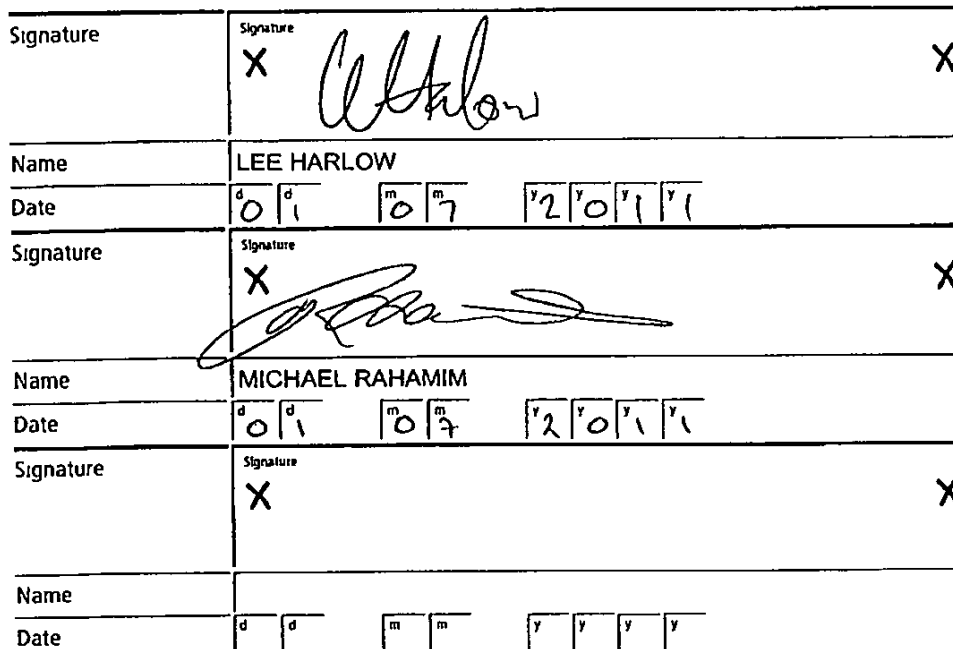 Signature Signature
X X
Harlow
Name LEE HARLOW
Date d0 d1 m0 m7 y2 y0 y1 y1
Signature Signature
X X
Name MICHAEL RAHAMIM
Date d0 d1 m0 m7 y2 y0 y1 y1
Signature Signature
X X
Name
Date d d m m y y y y